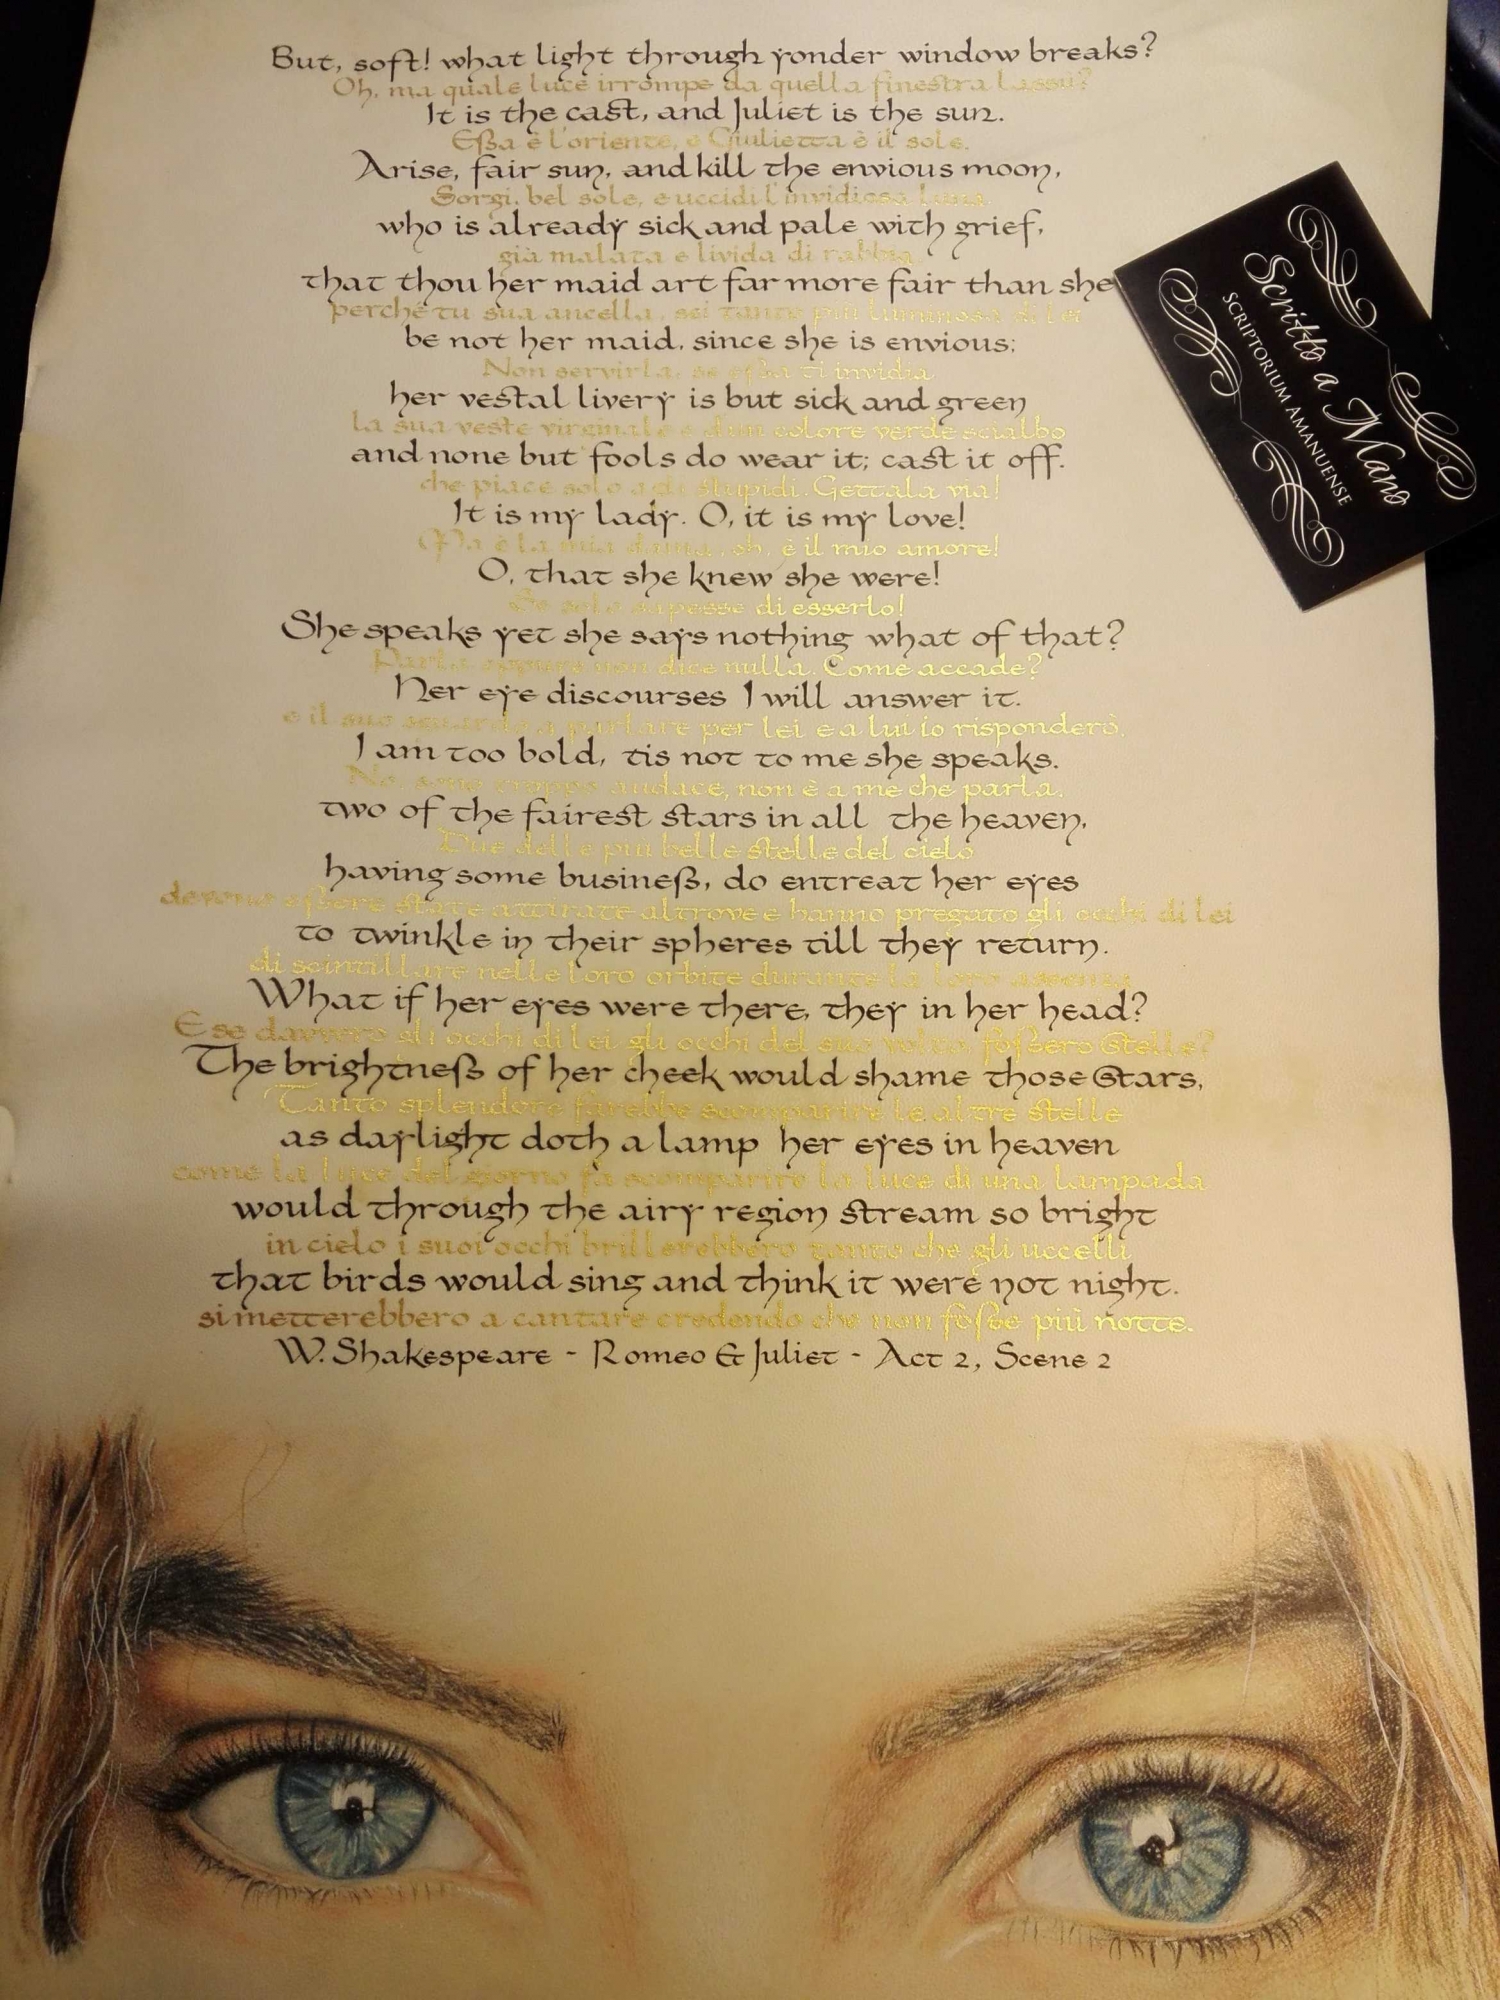 But, soft! what light through yonder window breaks?
Oh, ma quale luce irrompe da quella finestra lassù?
It is the east, and Juliet is the sun.
Essa è l'oriente, e Giulietta è il sole.
Arise, fair sun, and kill the envious moon,
Sorgi, bel sole, e uccidi l'invidiosa luna
who is already sick and pale with grief,
già malata e livida di rabbia
that thou her maid art far more fair than she
perché tu sua ancella, sei tanto più luminosa di lei
be not her maid, since she is envious;
Non servirla, se essa ti invidia
her vestal livery is but sick and green
la sua veste virginale è d'un colore verde scialbo
and none but fools do wear it; cast it off.
che piace solo agli stupidi. Gettala via!
It is my lady. O, it is my love!
Ma è la mia dama, oh, è il mio amore!
O, that she knew she were!
Se solo sapesse di esserlo!
She speaks yet she says nothing what of that?
Parla eppure non dice nulla. Come accade?
Her eye discourses I will answer it.
e il suo sguardo a parlare per lei e a lui io risponderò.
I am too bold, tis not to me she speaks.
No, sono troppo audace, non è a me che parla.
two of the fairest stars in all the heaven,
Due delle più belle stelle del cielo
having some business, do entreat her eyes
devono essere state attirate altrove e hanno pregato gli occhi di lei
to twinkle in their spheres till they return.
di scintillare nelle loro orbite durante la loro assenza
What if her eyes were there, they in her head?
E se davvero gli occhi di lei gli occhi del suo volto fossero stelle?
The brightness of her cheek would shame those stars,
Tanto splendore farebbe scomparire le altre stelle
as daylight doth a lamp her eyes in heaven
come la luce del giorno fa scomparire la luce di una lampada
would through the airy region stream so bright
in cielo i suoi occhi brillerebbero tanto che gli uccelli
that birds would sing and think it were not night.
si metterebbero a cantare credendo che non fosse più notte.
W. Shakespeare - Romeo & Juliet - Act 2, Scene 2
Scritto a Mano
SCRIPTORIUM AMANUENSE